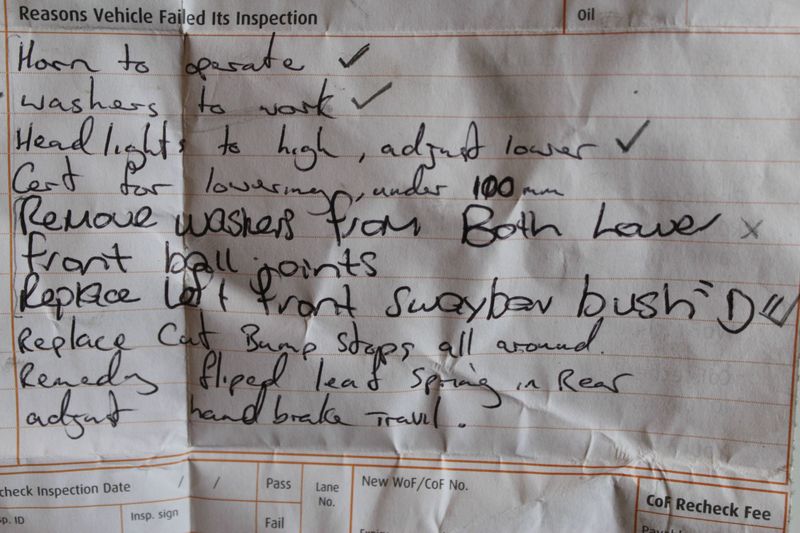 Reasons Vehicle Failed Its Inspection
Oil
Horn to operate ✓
washers to work ✓
Headlights to high, adjust lower ✓
Cert for lowering, under 100mm
Remove washers from Both Lower x
front ball joints
Replace left front swaybar bush
Replace Cut Bump Stops all around.
Remedy fliped leaf Spring in Rear
adjust handbrake Travil.
check Inspection Date / /
Pass
Lane No.
New WoF/CoF No.
CoF Recheck Fee
sp. ID
Insp. sign
Fail